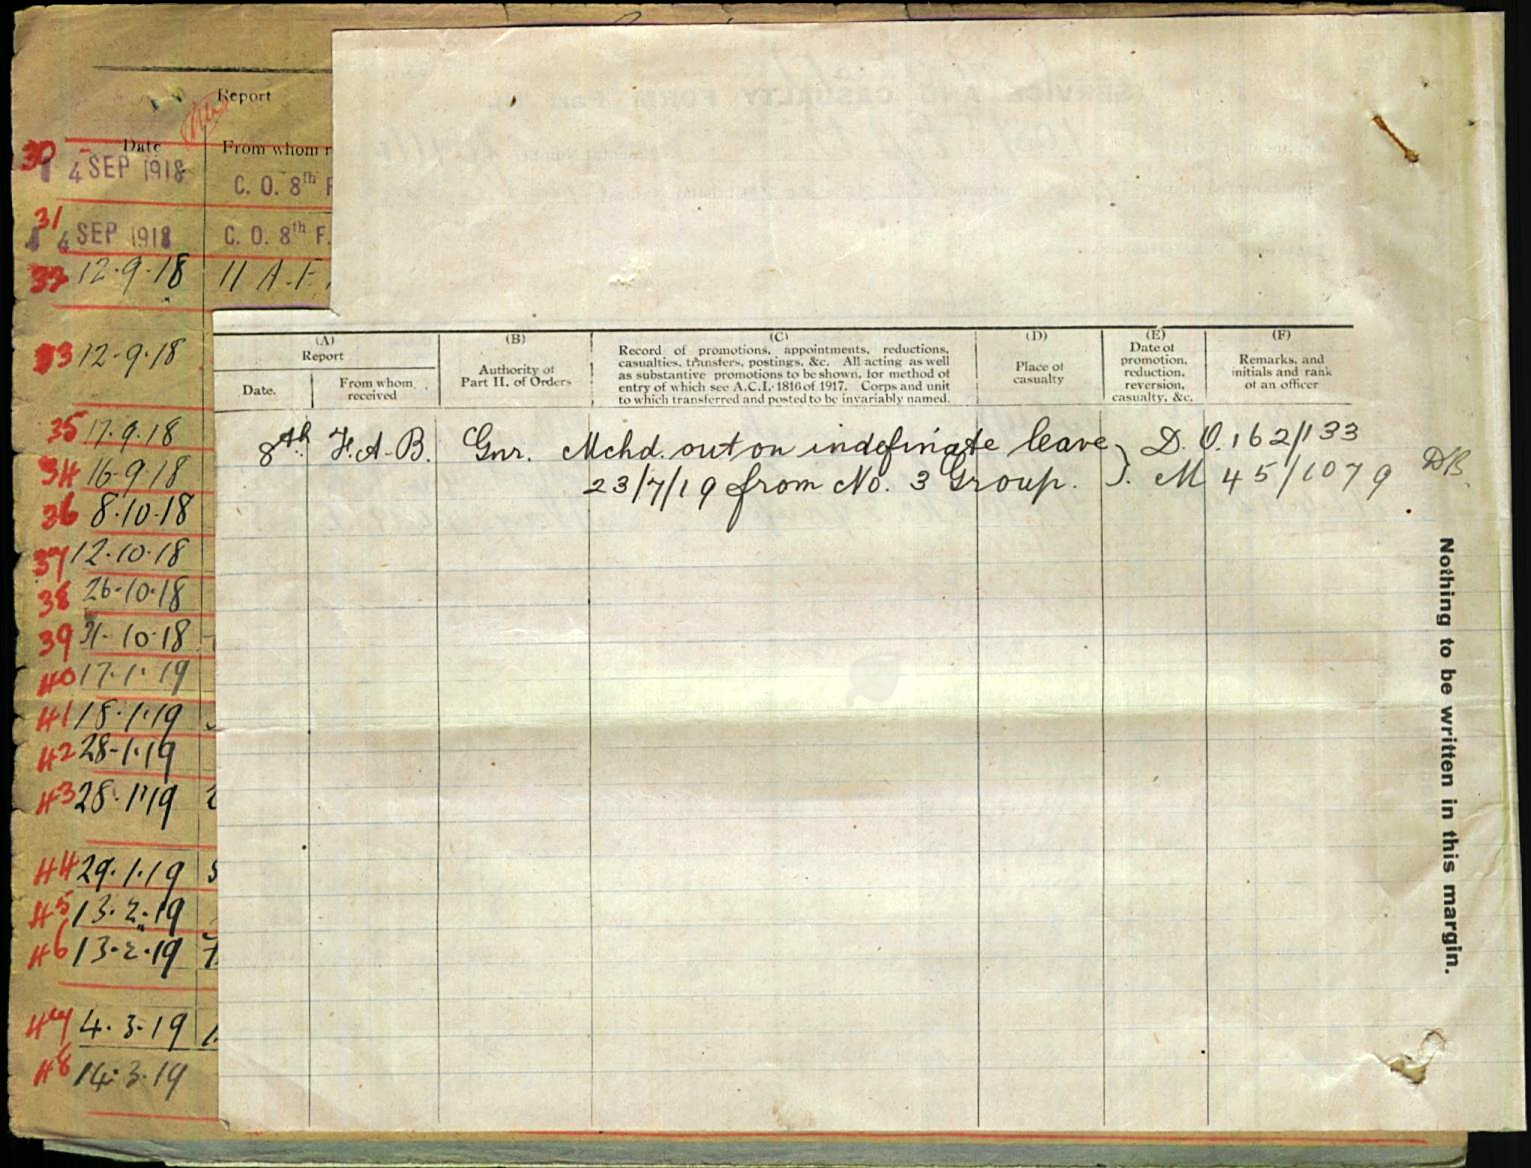 Report
Date
From whom r
30
4 SEP 1918
C. O. 8th F
31
4 SEP 1918
C. O. 8th F.
32 12.9.18 11 A.F.
33 12.9.18
35 17.9.18
34 16.9.18
36 8.10.18
37 12.10.18
38 26.10.18
39 31.10.18
40 17.1.19
41 18.1.19
42 28.1.19
43 28.1.19
44 29.1.19
45 13.2.19
46 13.2.19
47 4.3.19
48 14.3.19
(A)
Report
Date.
From whom
received
(B)
Authority of
Part II. of Orders
(C)
Record of promotions, appointments, reductions,
casualties, transfers, postings, &c. All acting as well
as substantive promotions to be shown, for method of
entry of which see A.C.I. 1816 of 1917. Corps and unit
to which transferred and posted to be invariably named.
(D)
Place of
casualty
(E)
Date of
promotion,
reduction,
reversion,
casualty, &c.
(F)
Remarks, and
initials and rank
of an officer
8th. F.A.B. Gnr. Mchd. out on indefinate leave } D.O. 162/133
23/7/19 from No. 3 Group. M 45/1079 DB.
Nothing to be written in this margin.